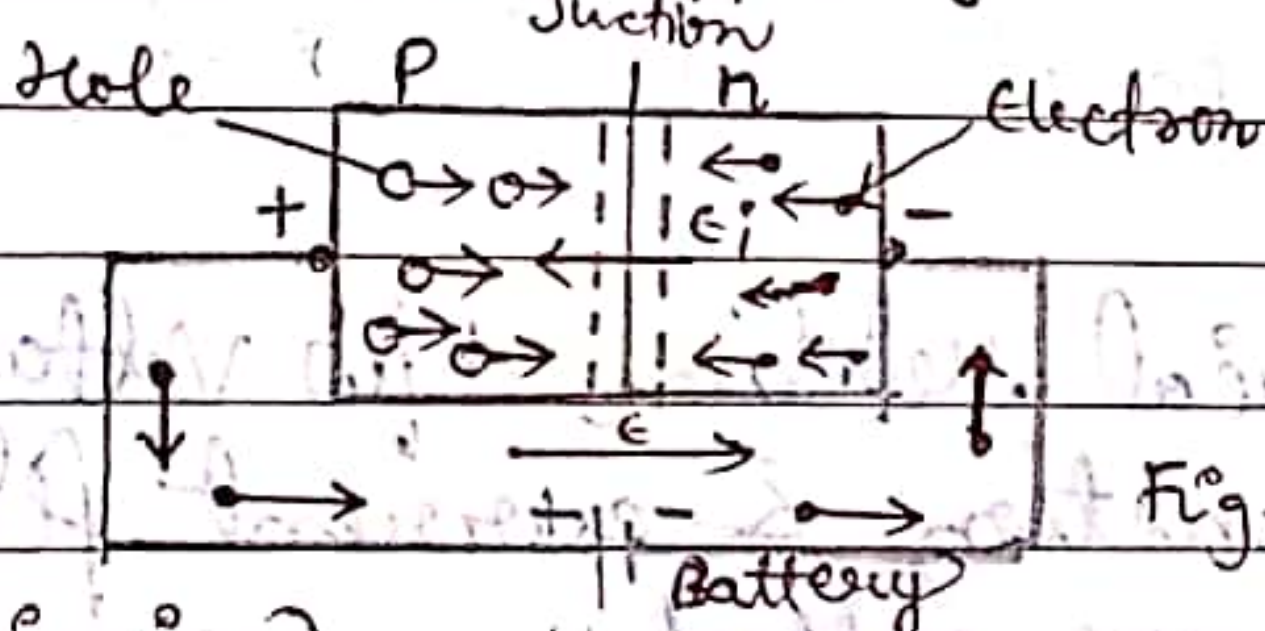 Juction
Hole P n Electron
+ Ei -
E
+ - Fig.
Battery